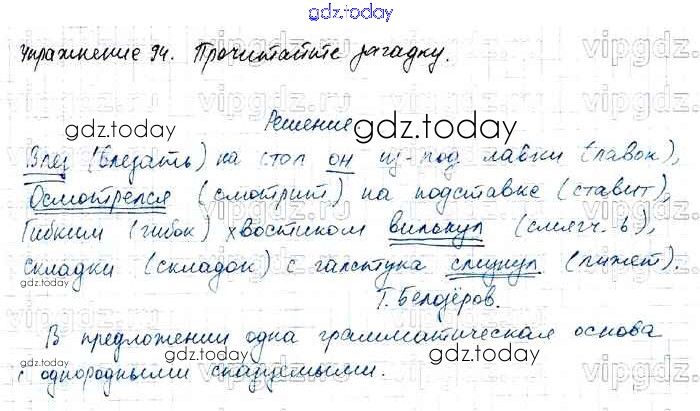 gdz.today
Упражнение 94. Прочитайте загадку.
Решение.
gdz.today
gdz.today
Влез (влезать) на стол он из-под лавки (лавок),
Осмотрелся (смотрит) на подставке (ставит),
Гибким (гибок) хвостиком вильнул (смягч. ь),
складки (складок) с галстука слизнул (лижет).
gdz.today
gdz.today
Т. Белозёров.
В предложении одна грамматическая основа
с однородными сказуемыми.
gdz.today
gdz.today